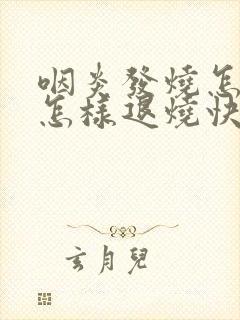 咽炎發燒怎
怎樣退燒快
玄月兒